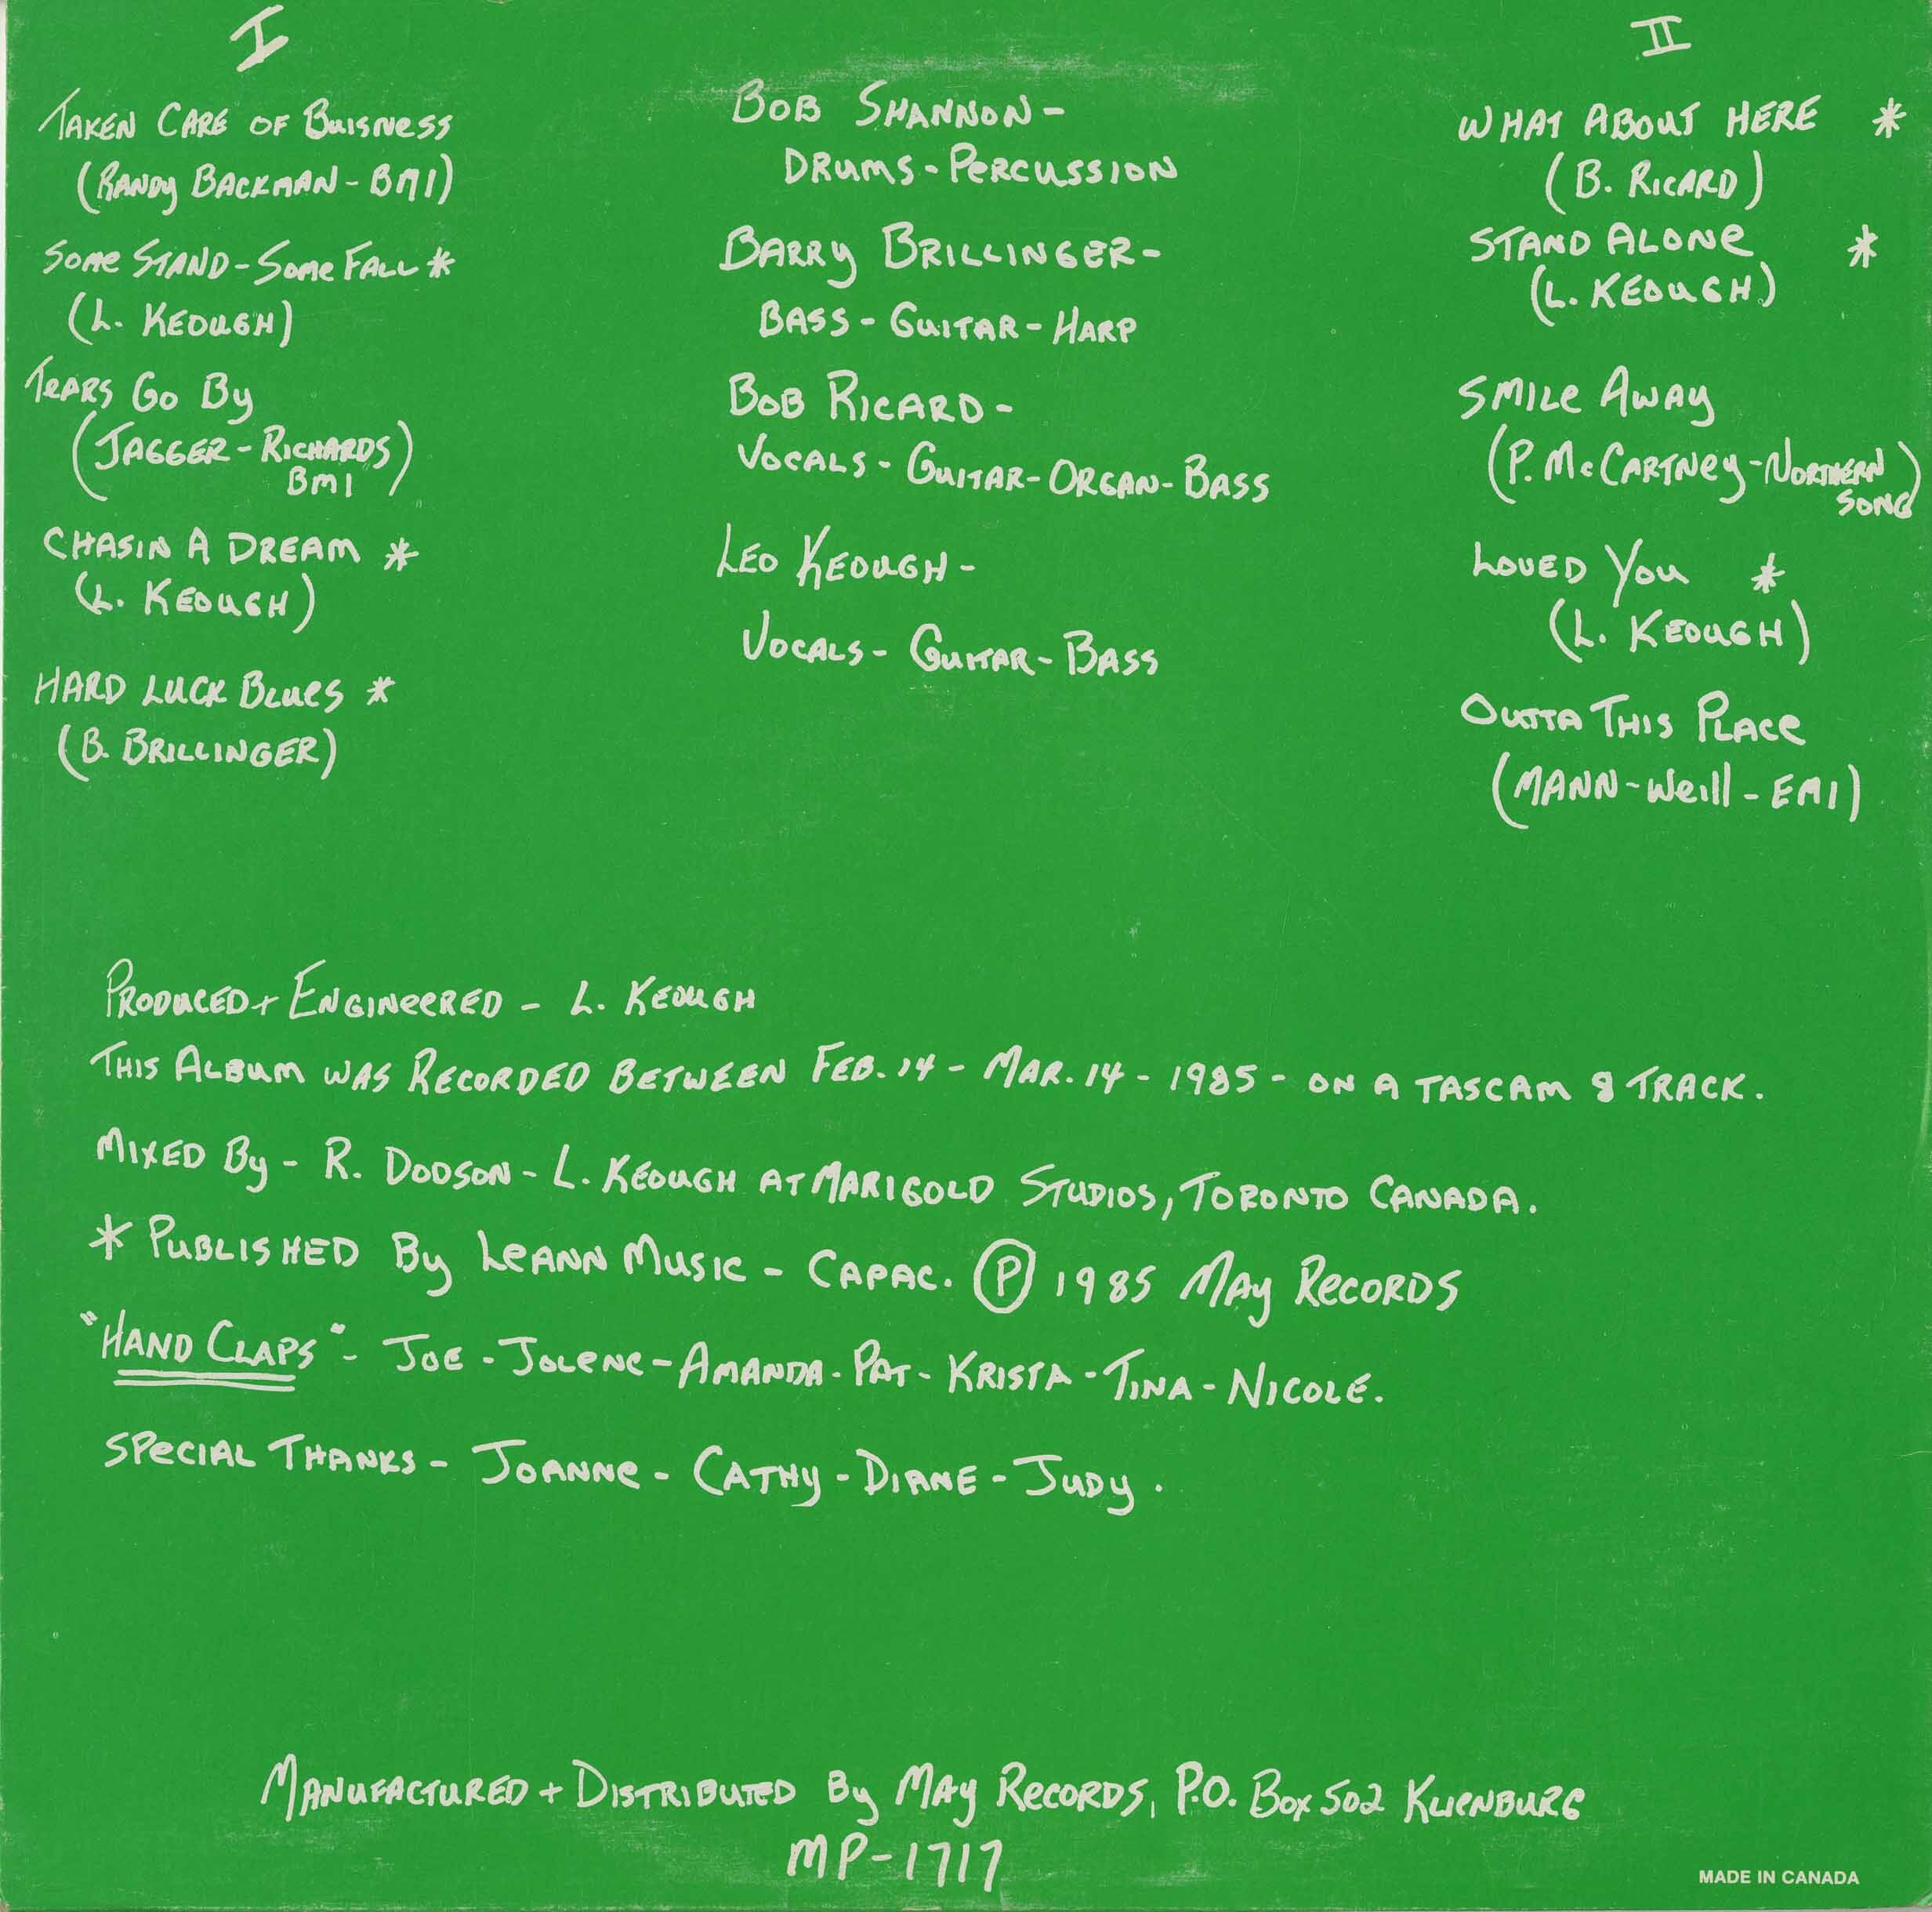 I
TAKEN CARE OF BUISNESS
(RANDY BACKMAN - BMI)
SOME STAND - SOME FALL *
(L. KEOUGH)
TEARS GO BY
(JAGGER - RICHARDS
BMI)
CHASIN A DREAM *
(L. KEOUGH)
HARD LUCK BLUES *
(B. BRILLINGER)
BOB SHANNON -
DRUMS - PERCUSSION
BARRY BRILLINGER -
BASS - GUITAR - HARP
BOB RICARD -
VOCALS - GUITAR - ORGAN - BASS
LEO KEOUGH -
VOCALS - GUITAR - BASS
II
WHAT ABOUT HERE *
(B. RICARD)
STAND ALONE *
(L. KEOUGH)
SMILE AWAY
(P. McCARTNEY - NORTHERN
SONG)
LOVED YOU *
(L. KEOUGH)
OUTTA THIS PLACE
(MANN - Weill - EMI)
PRODUCED + ENGINEERED - L. KEOUGH
THIS ALBUM WAS RECORDED BETWEEN FEB. 14 - MAR. 14 - 1985 - ON A TASCAM 8 TRACK.
MIXED BY - R. DODSON - L. KEOUGH AT MARIGOLD STUDIOS, TORONTO CANADA.
* PUBLISHED BY LEANN MUSIC - CAPAC. Ⓟ 1985 MAY RECORDS
"HAND CLAPS" - JOE - JOLENE - AMANDA - PAT - KRISTA - TINA - NICOLE.
SPECIAL THANKS - JOANNE - CATHY - DIANE - JUDY.
MANUFACTURED + DISTRIBUTED BY MAY RECORDS, P.O. BOX 502 KLIENBURG
MP-1717
MADE IN CANADA